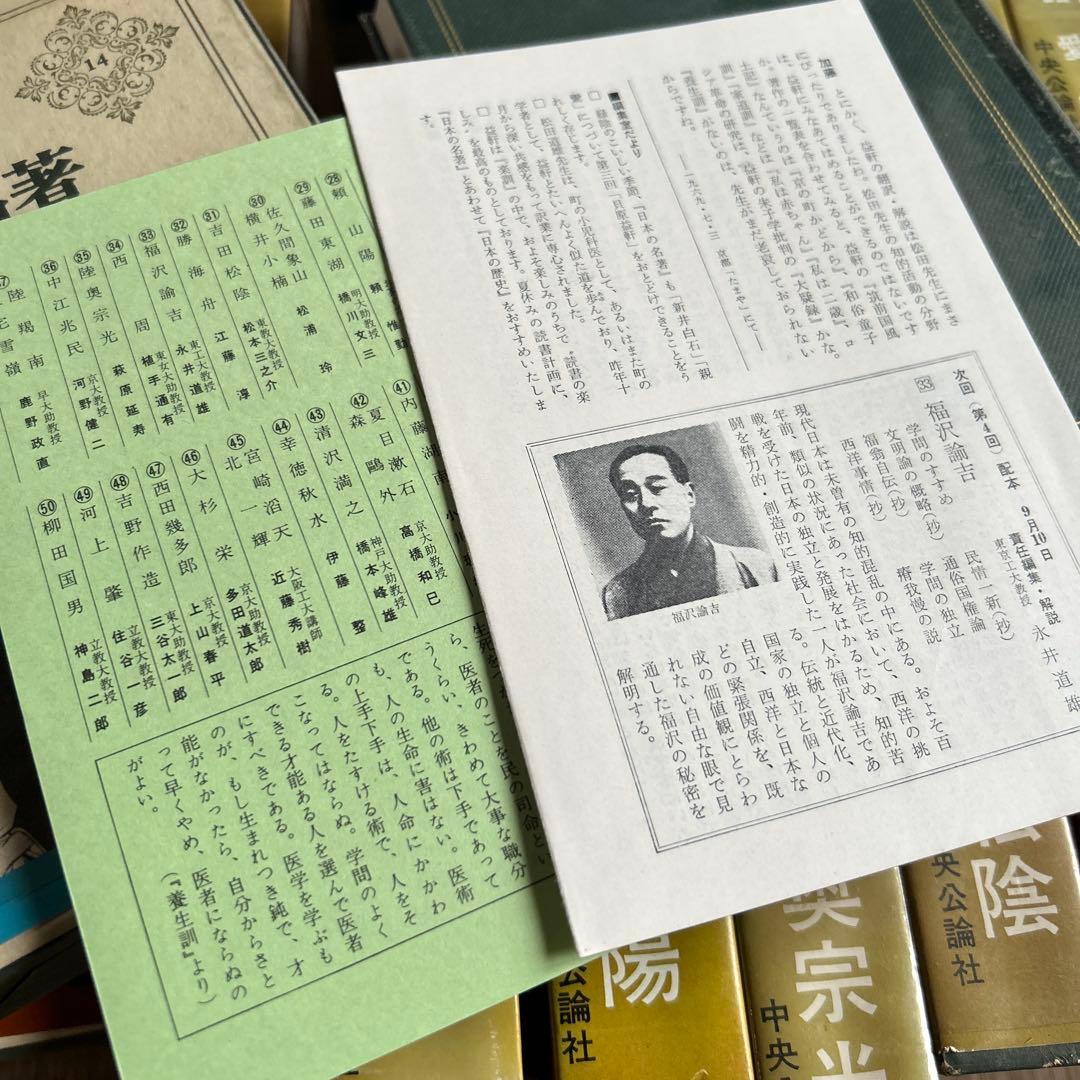 加藤　とにかく、益軒の翻訳・解説は松田先生にまさ
にぴったりでありましたね。松田先生の知的活動の分野
は、益軒にみなあてはめることができるのではないです
か。著作の一覧表を合わせてみると、益軒の『筑前国風
土記』なんていうのは『京の町かどから』、『和俗童子
訓』『家道訓』などは『私は赤ちゃん』『私は二歳』、ロ
シア革命の研究は、益軒の朱子学批判の『大疑録』かな。
『養生訓』がないのは、先生がまだ老衰しておられない
からですね。
――一九六九・七・三　京都「たまや」にて――
■編集室だより
□　緑陰のこいしい季節、『日本の名著』も「新井白石」「親
鸞」につづいて第三回「貝原益軒」をおとどけできることをう
れしく存じます。
□　松田道雄先生は、町の小児科医として、あるいはまた町の
学者として、益軒とたいへんよく似た道を歩んでおり、昨年十
月から深い共感をもって訳業に専心されました。
□　益軒は『楽訓』の中で、およそ楽しみのうちで〝読書の楽
しみ〟を最高のものとしております。夏休みの読書計画に、
『日本の名著』とあわせて『日本の歴史』をおすすめいたしま
す。
次回（第4回）配本　9月10日
㉝　福沢諭吉
責任編集・解説
東京工大教授　永井道雄
学問のすすめ
文明論の概略(抄)
福翁自伝(抄)
西洋事情(抄)
民情一新(抄)
通俗国権論
学問の独立
瘠我慢の説
現代日本は未曽有の知的混乱の中にある。およそ百
年前、類似の状況にあった社会において、西洋の挑
戦を受けた日本の独立と発展をはかるため、知的苦
闘を精力的・創造的に実践した一人が福沢諭吉であ
る。伝統と近代化、
国家の独立と個人の
自立、西洋と日本な
どの緊張関係を、既
成の価値観にとらわ
れない自由な眼で見
通した福沢の秘密を
解明する。
福沢諭吉
㉘　頼山陽　頼惟勤
㉙　藤田東湖　明大助教授　橋川文三
㉚　佐久間象山　横井小楠　松浦玲
㉛　吉田松陰　東教大教授　松本三之介
㉜　勝海舟　江藤淳
㉝　福沢諭吉　東工大教授　永井道雄
㉞　西周　東女大助教授　植手通有
㉟　陸奥宗光　萩原延寿
㊱　中江兆民　京大助教授　河野健二
陸羯南
三宅雪嶺　早大助教授　鹿野政直
㊶　内藤湖南
㊷　夏目漱石　森鷗外　京大助教授　高橋和巳
㊸　清沢満之　神戸大助教授　橋本峰雄
㊹　幸徳秋水　伊藤整
㊺　宮崎滔天　北一輝　大阪工大講師　近藤秀樹
㊻　大杉栄　京大助教授　多田道太郎
㊼　西田幾多郎　京大教授　上山春平
㊽　吉野作造　東大助教授　三谷太一郎
㊾　河上肇　立教大教授　住谷一彦
㊿　柳田国男　立教大教授　神島二郎
医者のことを民の司命とい
うくらい、きわめて大事な職分
である。他の術は下手であって
も、人の生命に害はない。医術
の上手下手は、人命にかかわ
る。人をたすける術で、人をそ
こなってはならぬ。学問のよく
できる才能ある人を選んで医者
にすべきである。医学を学ぶも
のが、もし生まれつき鈍で、才
能がなかったら、自分からさと
って早くやめ、医者にならぬの
がよい。
（『養生訓』より）
14
著
中央公論
陽
公論社
奥宗光
中央
陰
央公論社